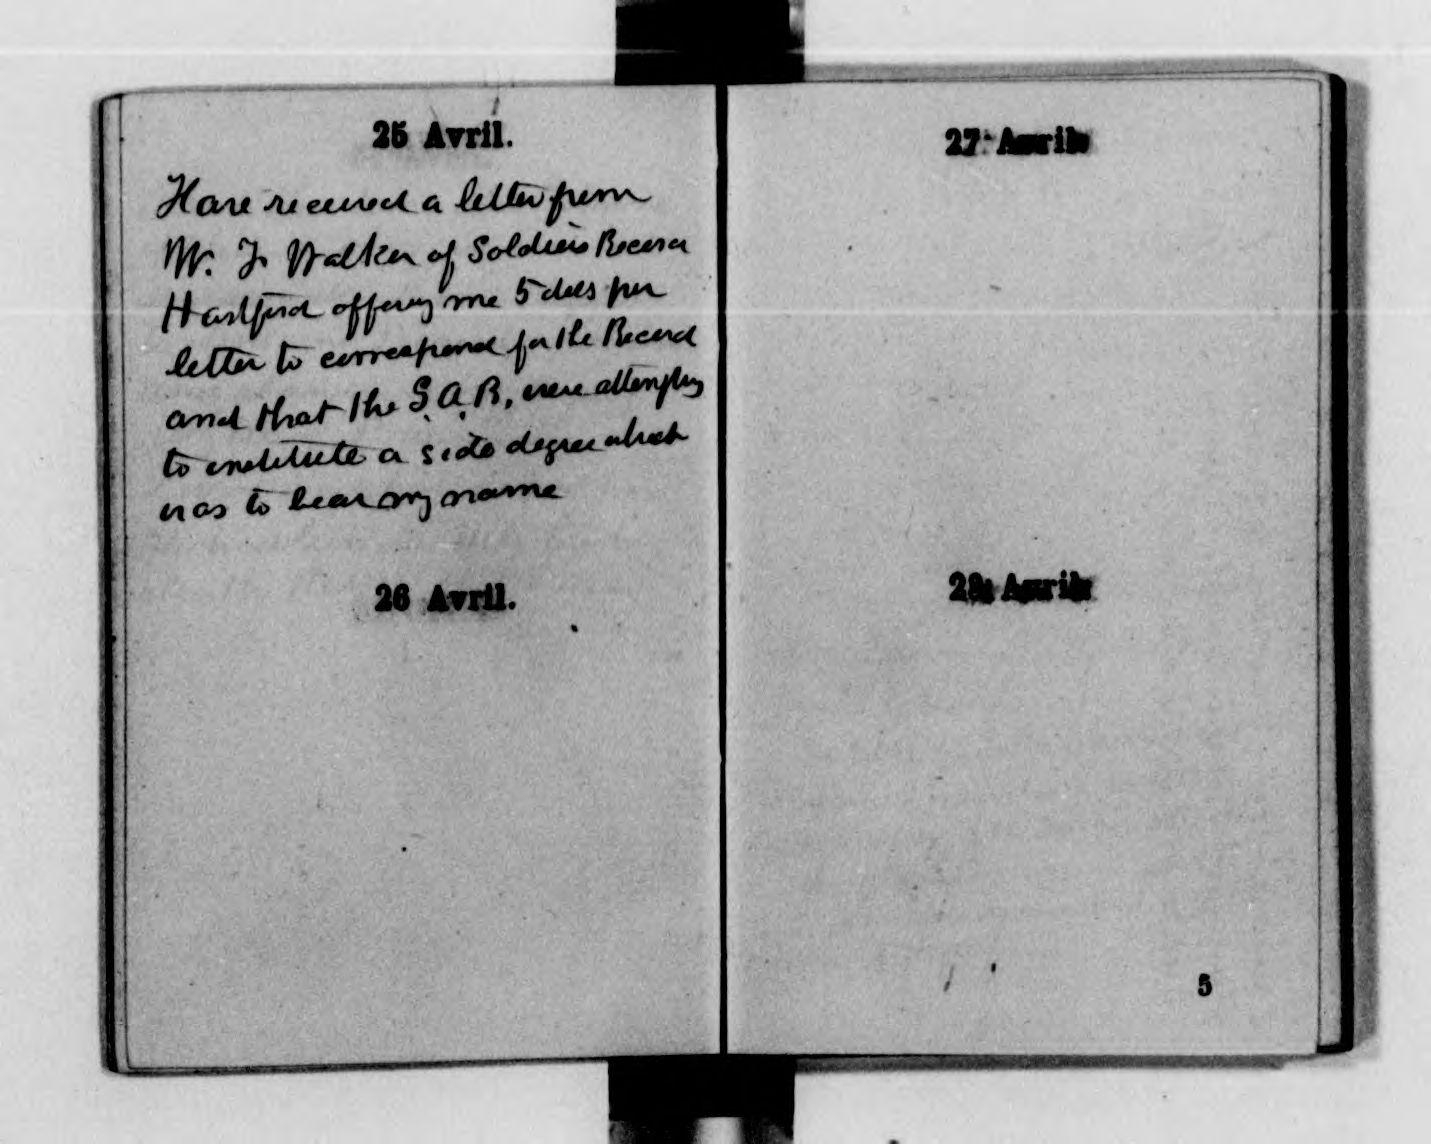 25 Avril.
Have received a letter from
W. F. Walker of Soldiers Record
Hartford offering me 5 dols per
letter to correspond for the Record
and that the G.A.R. were attempting
to institute a side degree which
was to bear my name
26 Avril.
27 Avril
28 Avril
5